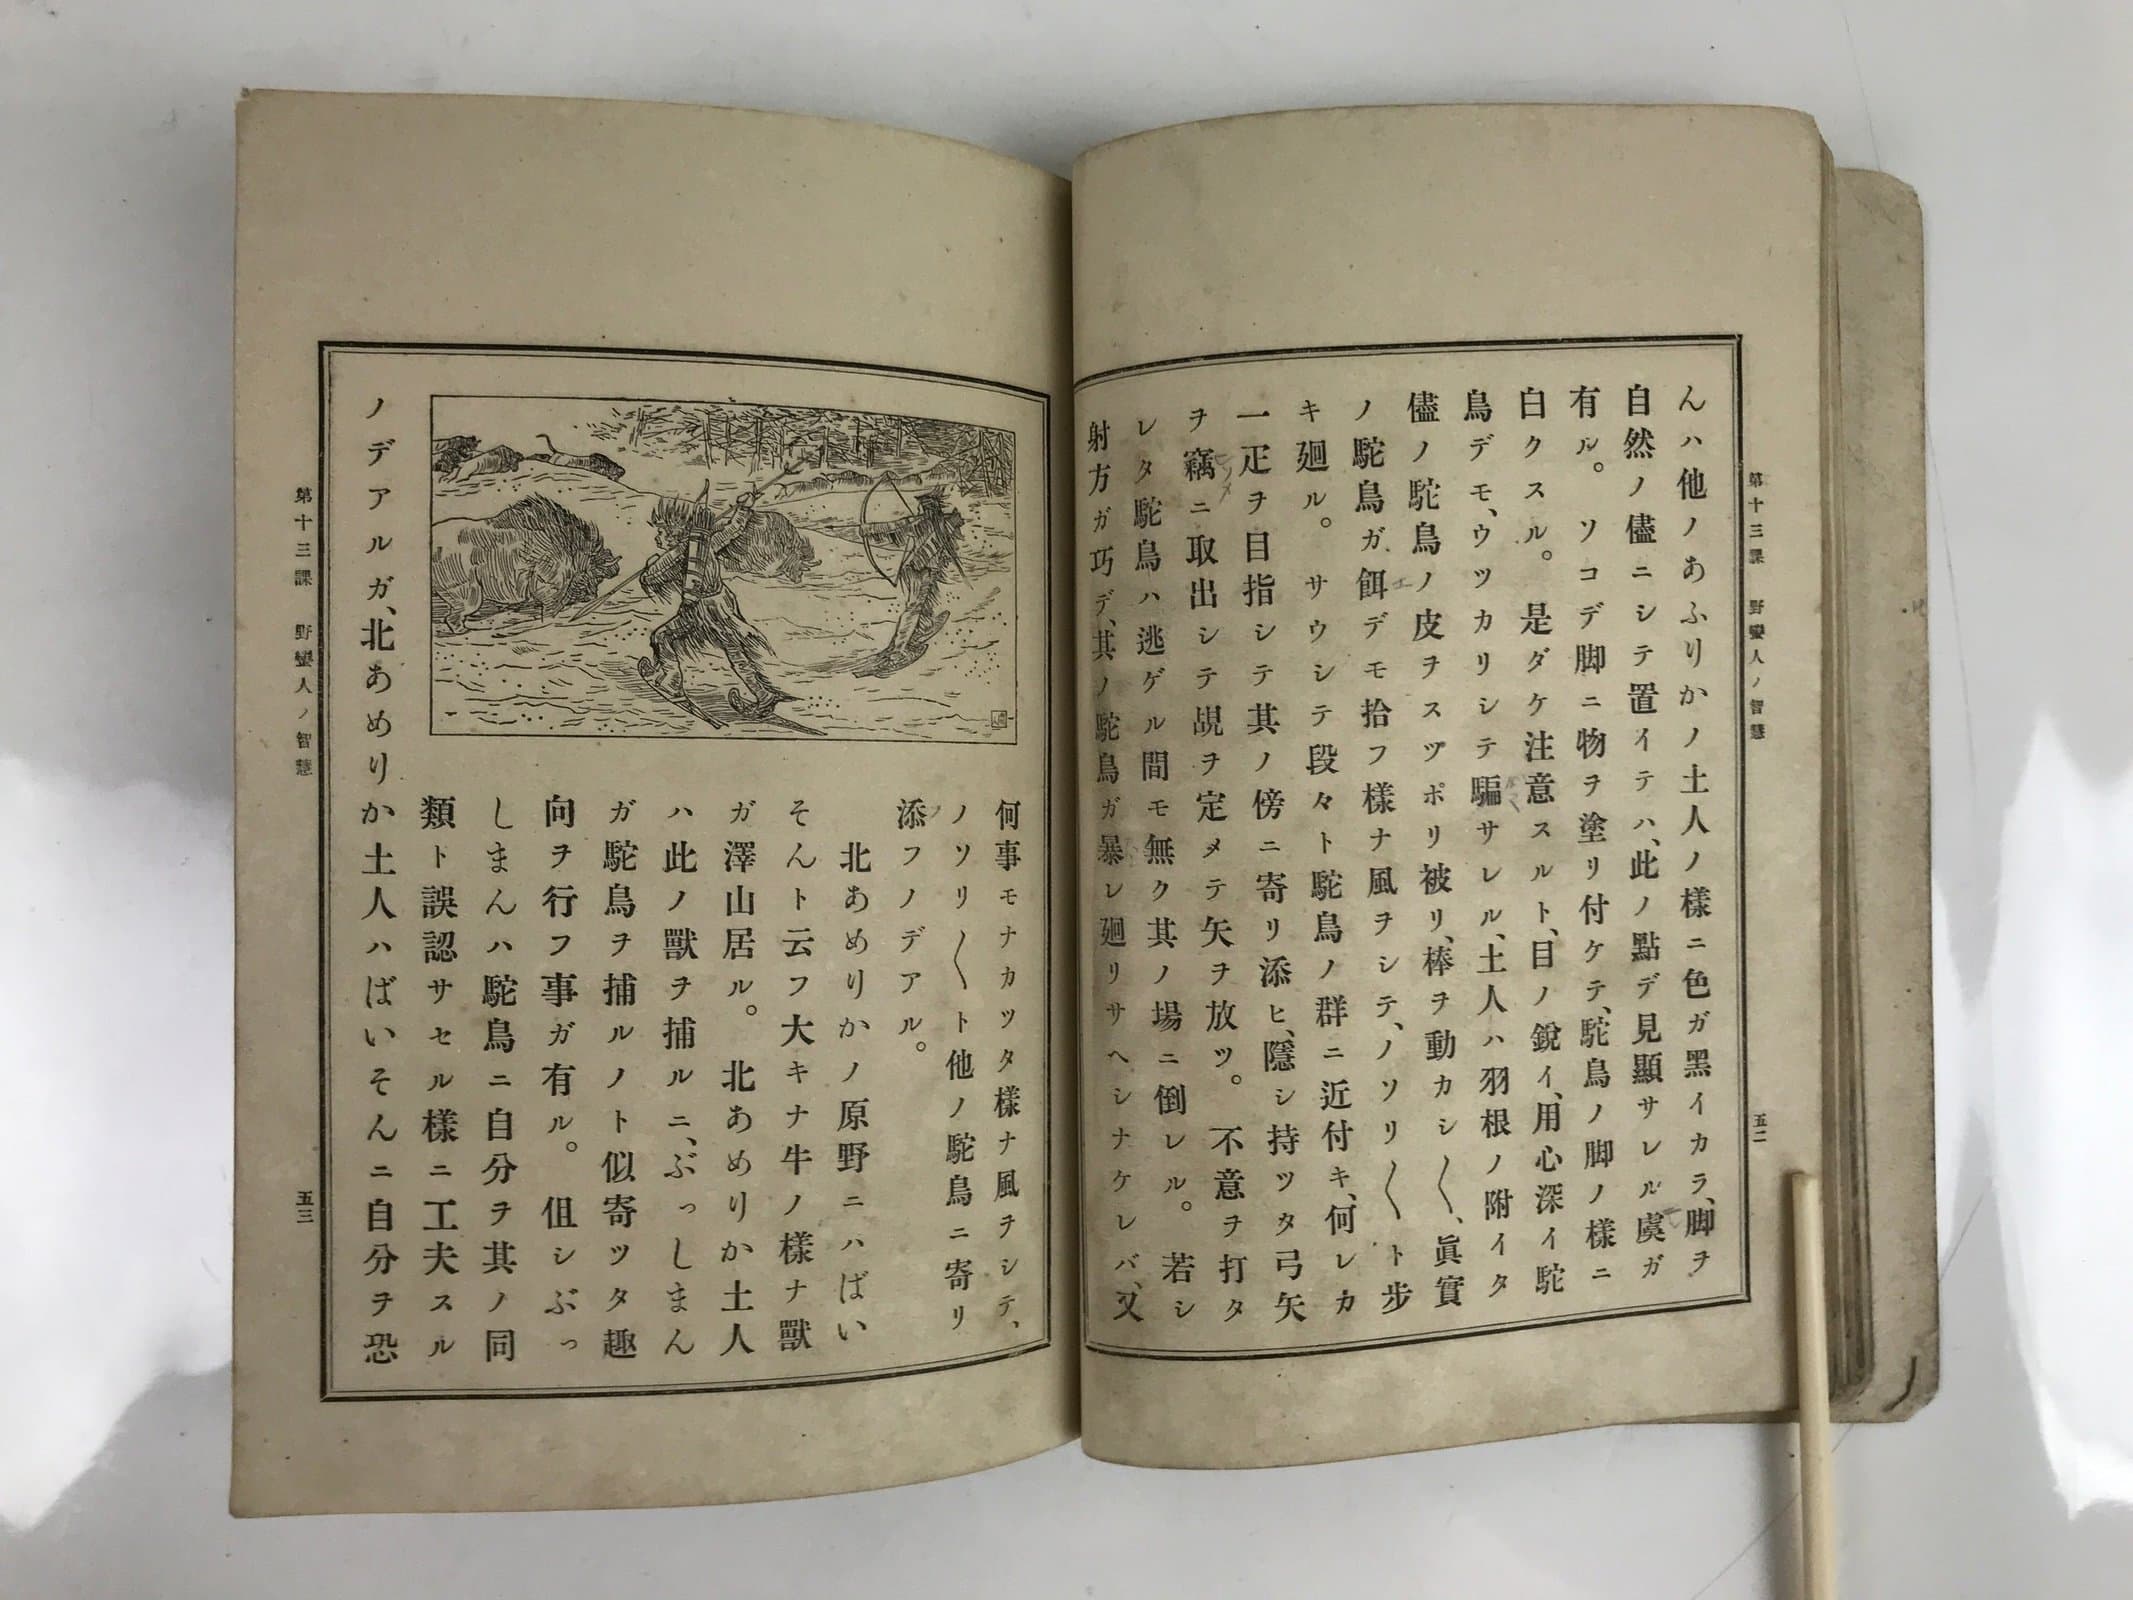 第十三課　野蠻人ノ智慧
五二
んハ他ノあふりかノ土人ノ樣ニ色ガ黑イカラ、脚ヲ
自然ノ儘ニシテ置イテハ、此ノ點デ見顯サレル虞ガ
有ル。ソコデ脚ニ物ヲ塗リ付ケテ、駝鳥ノ脚ノ樣ニ
白クスル。是ダケ注意スルト、目ノ銳イ、用心深イ駝
鳥デモ、ウツカリシテ騙サレル、土人ハ羽根ノ附イタ
儘ノ駝鳥ノ皮ヲスツポリ被リ、棒ヲ動カシ〱、眞實
ノ駝鳥ガ餌デモ拾フ樣ナ風ヲシテ、ノソリ〱ト步
キ廻ル。サウシテ段々ト駝鳥ノ群ニ近付キ、何レカ
一疋ヲ目指シテ其ノ傍ニ寄リ添ヒ、隱シ持ツタ弓矢
ヲ竊ニ取出シテ覘ヲ定メテ矢ヲ放ツ。不意ヲ打タ
レタ駝鳥ハ逃ゲル間モ無ク其ノ場ニ倒レル。若シ
射方ガ巧デ、其ノ駝鳥ガ暴レ廻リサヘシナケレバ、又
何事モナカツタ樣ナ風ヲシテ、
ノソリ〱ト他ノ駝鳥ニ寄リ
添フノデアル。
北あめりかノ原野ニハばい
そんト云フ大キナ牛ノ樣ナ獸
ガ澤山居ル。北あめりか土人
ハ此ノ獸ヲ捕ルニ、ぶっしまん
ガ駝鳥ヲ捕ルノト似寄ツタ趣
向ヲ行フ事ガ有ル。伹シぶっ
しまんハ駝鳥ニ自分ヲ其ノ同
類ト誤認サセル樣ニ工夫スル
ノデアルガ、北あめりか土人ハばいそんニ自分ヲ恐
第十三課　野蠻人ノ智慧
五三